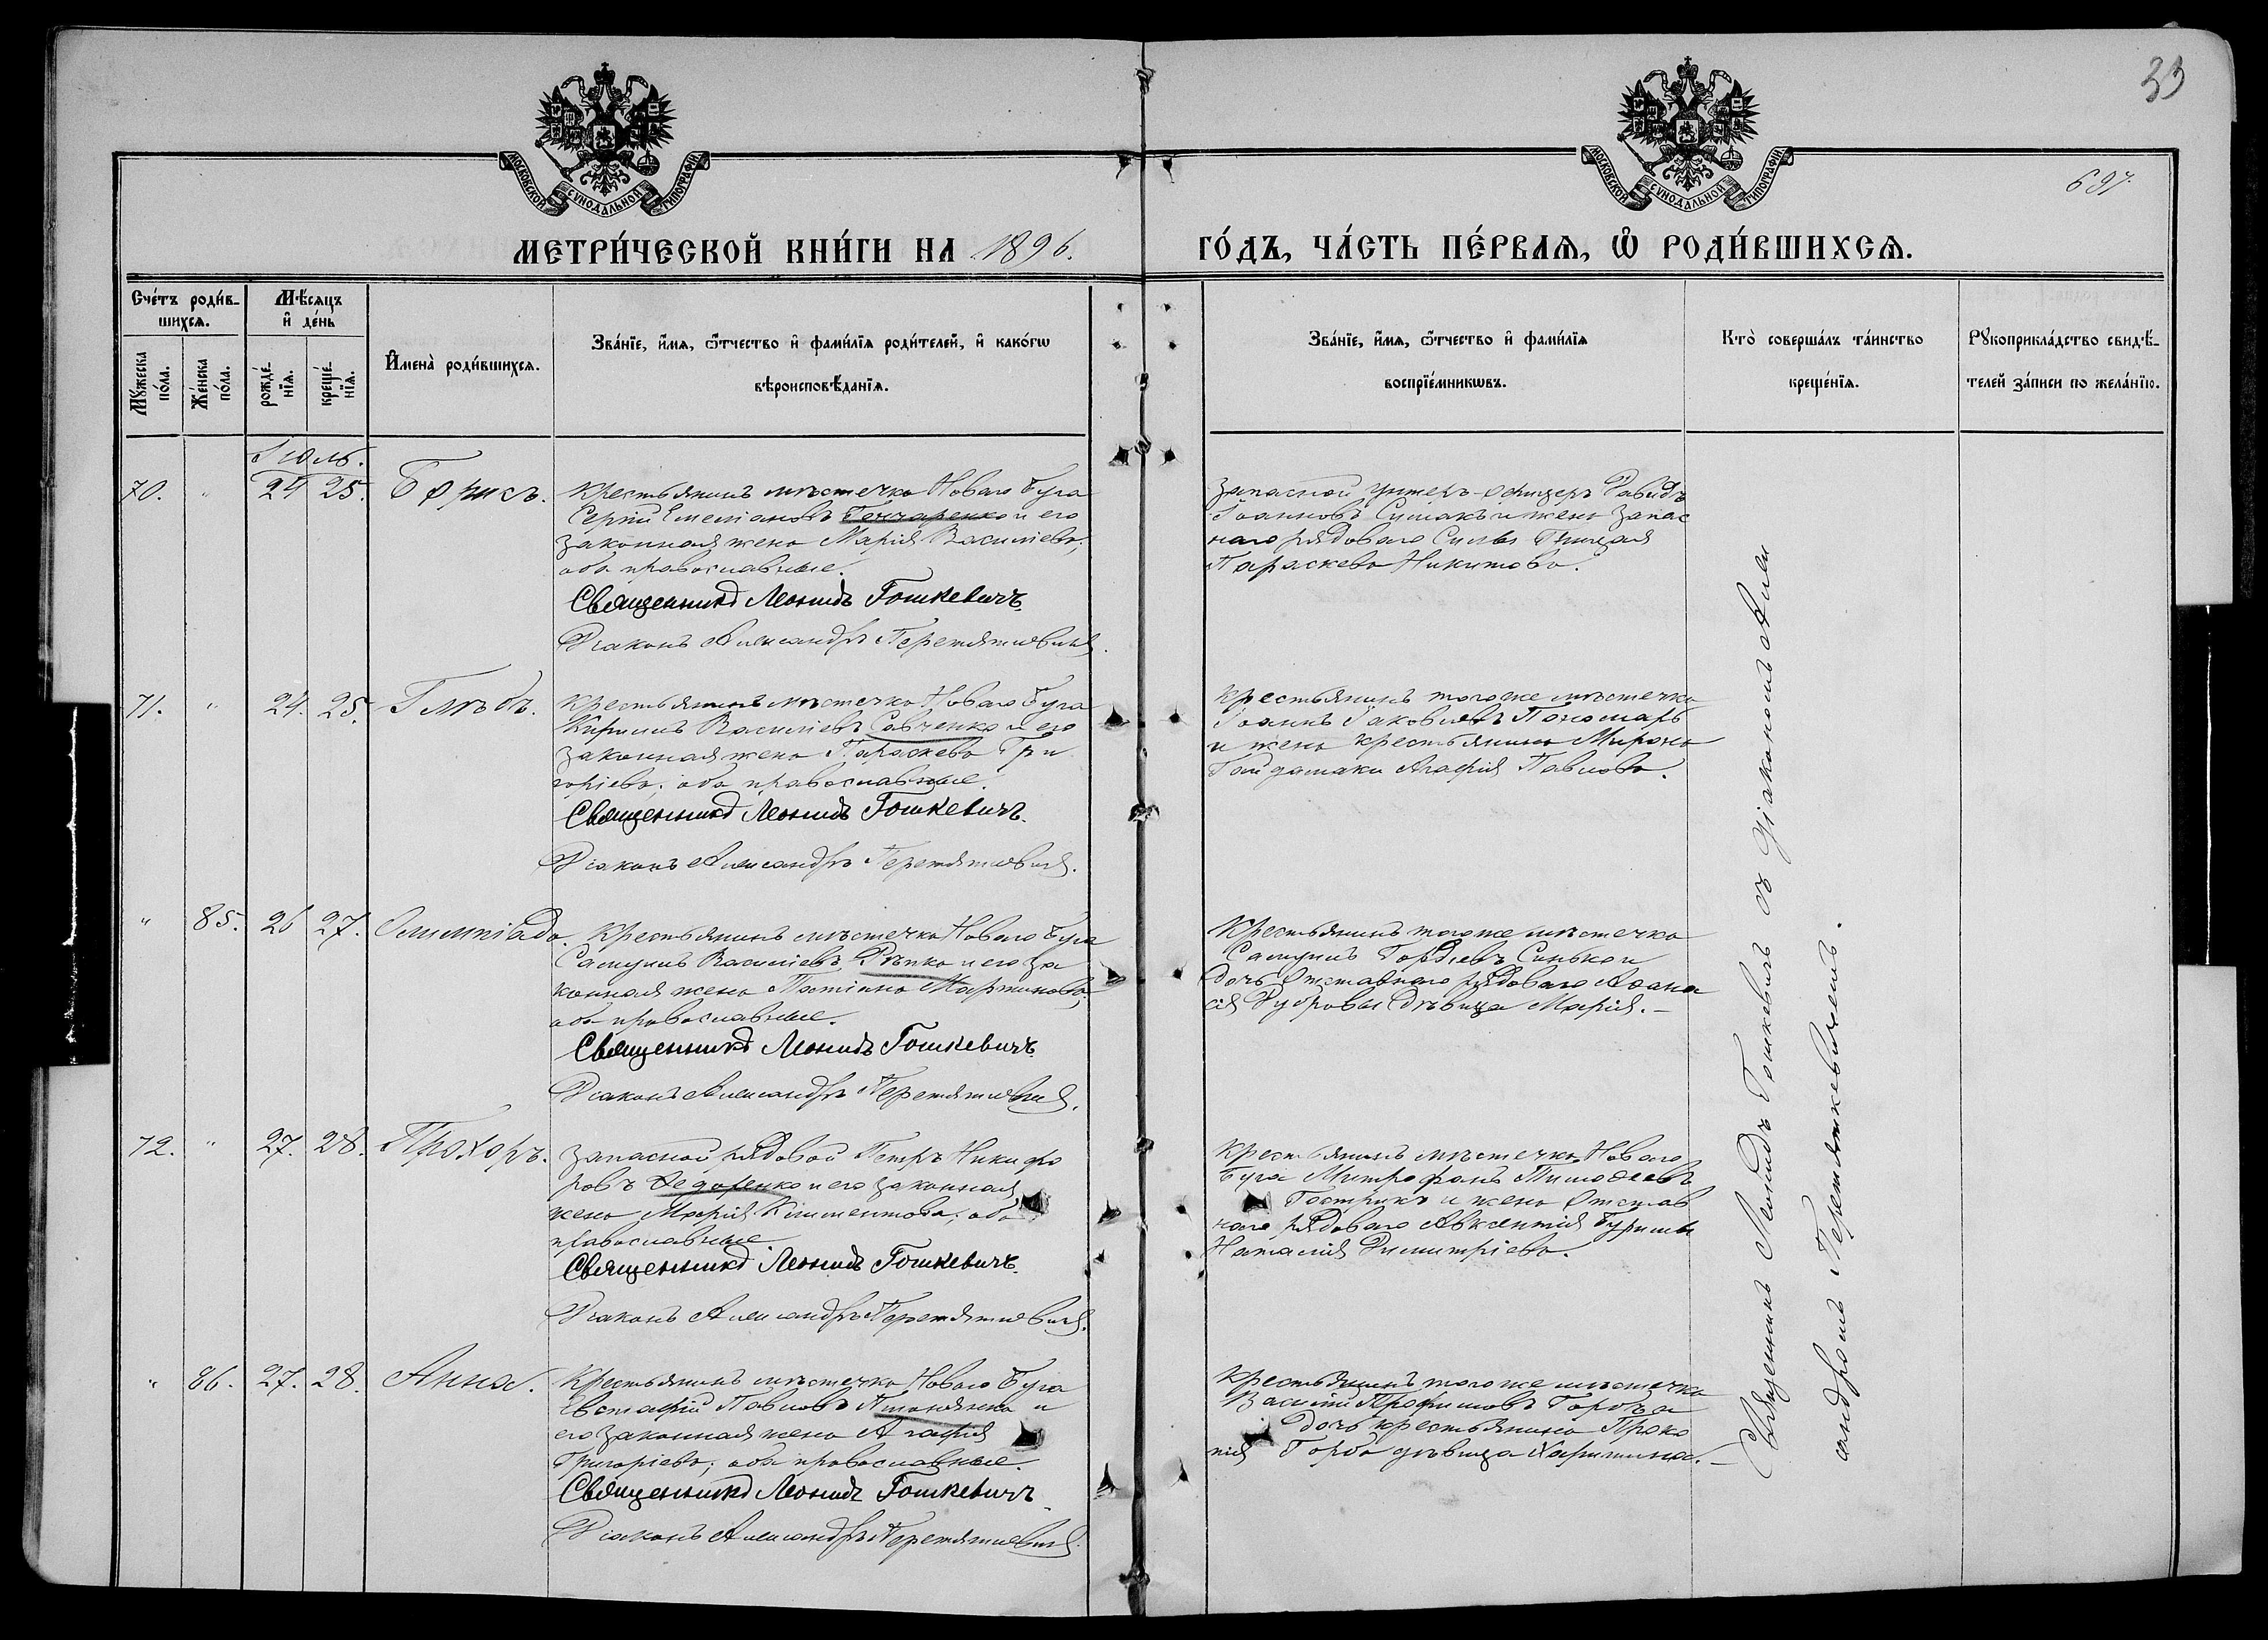 33
697.
МОСКОВСКОЙ СУНОДАЛЬНОЙ ТИПОГРАФІИ.
МОСКОВСКОЙ СУНОДАЛЬНОЙ ТИПОГРАФІИ.
МЕТРИ́ЧЕСКОЙ КНИ́ГИ НА 1896.
ГО́ДЪ, ЧА́СТЬ ПЕ́РВАѦ, Ѽ РОДИ́ВШИХСѦ.
Сче́тъ роди́в-
шихсѧ.
Мꙋ́жеска по́ла.
Же́нска по́ла.
Мѣ́сѧцъ
и҆ де́нь
рожде́нїѧ.
креще́нїѧ.
И҆мена̀ роди́вшихсѧ.
Зва́нїе, и҆́мѧ, ѻ҆́тчество и҆ фами́лїѧ роди́телей, и҆ како́гѡ
вѣроисповѣ́данїѧ.
Зва́нїе, и҆́мѧ, ѻ҆́тчество и҆ фами́лїѧ
воспрїе́мникѡвъ.
Кто̀ соверша́лъ та́инство
креще́нїѧ.
Рꙋкоприкла́дство свидѣ́-
телей за́писи по жела́нїю.
Іюль.
70. " 24 25. Борисъ.
Крестьянинъ мѣстечка Новаго Буга
Сергій Емеліановъ Гончаренко и его
законная жена Марія Василіева;
оба православные.
Священникъ Леонидъ Гошкевичъ.
Діаконъ Александръ Перетяткевичъ.
Запасной унтеръ-офицеръ Давидъ
Іоанновъ Симакъ и жена запас
наго рядоваго Силы
Параскева Никитова.
71. " 24. 25. Глѣбъ.
Крестьянинъ мѣстечка Новаго Буга
Кириллъ Василіевъ Савченко и его
законная жена Параскева Гри
горіева; оба православные.
Священникъ Леонидъ Гошкевичъ.
Діаконъ Александръ Перетяткевичъ.
Крестьянинъ тогоже мѣстечка
Іоаннъ Іаковлевъ Пономарь
и жена крестьянина Мирона
Гайдамаки Агафія Павлова.
" 85. 26 27. Олимпіада.
Крестьянинъ мѣстечка Новаго Буга
Самуилъ Василіевъ Рѣпка и его за
конная жена Татіана Мартинова;
оба православные.
Священникъ Леонидъ Гошкевичъ.
Діаконъ Александръ Перетяткевичъ.
Крестьянинъ тогоже мѣстечка
Самуилъ Гордіевъ Синько и
дочь отставнаго рядоваго Афана
сія дѣвица Марія.
72. " 27. 28. Прохоръ.
Запасной рядовой Петръ Никифо
ровъ Федоренко и его законная
жена Марія Климентова; оба
православные.
Священникъ Леонидъ Гошкевичъ.
Діаконъ Александръ Перетяткевичъ.
Крестьянинъ мѣстечка Новаго
Буга Митрофанъ Тимофеевъ
и жена отстав
наго рядоваго Авксентія Бурилы
Наталія Димитріева.
" 86. 27. 28. Анна.
Крестьянинъ мѣстечка Новаго Буга
Евстафій Павловъ и
его законная жена Агафія
Григоріева; оба православные.
Священникъ Леонидъ Гошкевичъ.
Діаконъ Александръ Перетяткевичъ.
Крестьянинъ тогоже мѣстечка
Василій Трофимовъ и
дочь крестьянина Проко
пія Горба дѣвица Харитина.
Священникъ Леонидъ Гошкевичъ съ діакономъ Алек
сандромъ Перетяткевичемъ.